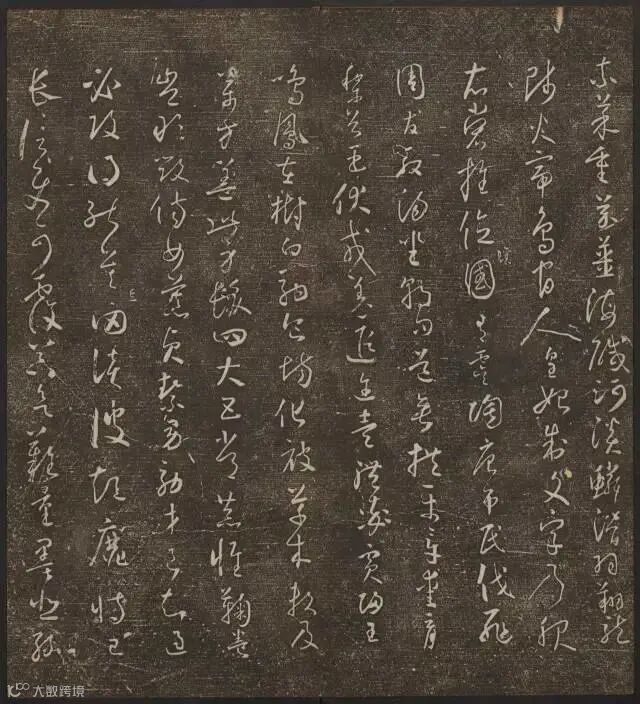 柰菜重芥薑海鹹河淡鱗潛羽翔龍
師火帝鳥官人皇始制文字乃服
衣裳推位讓國有虞陶唐弔民伐罪
周發殷湯坐朝問道垂拱平章愛育
黎首臣伏戎羌遐邇壹體率賓歸王
鳴鳳在樹白駒食場化被草木賴及
萬方蓋此身髮四大五常恭惟鞠養
豈敢毀傷女慕貞絜男効才良知過
必改得能莫忘罔談彼短靡恃己
長信使可覆器欲難量墨悲絲
大数跨境